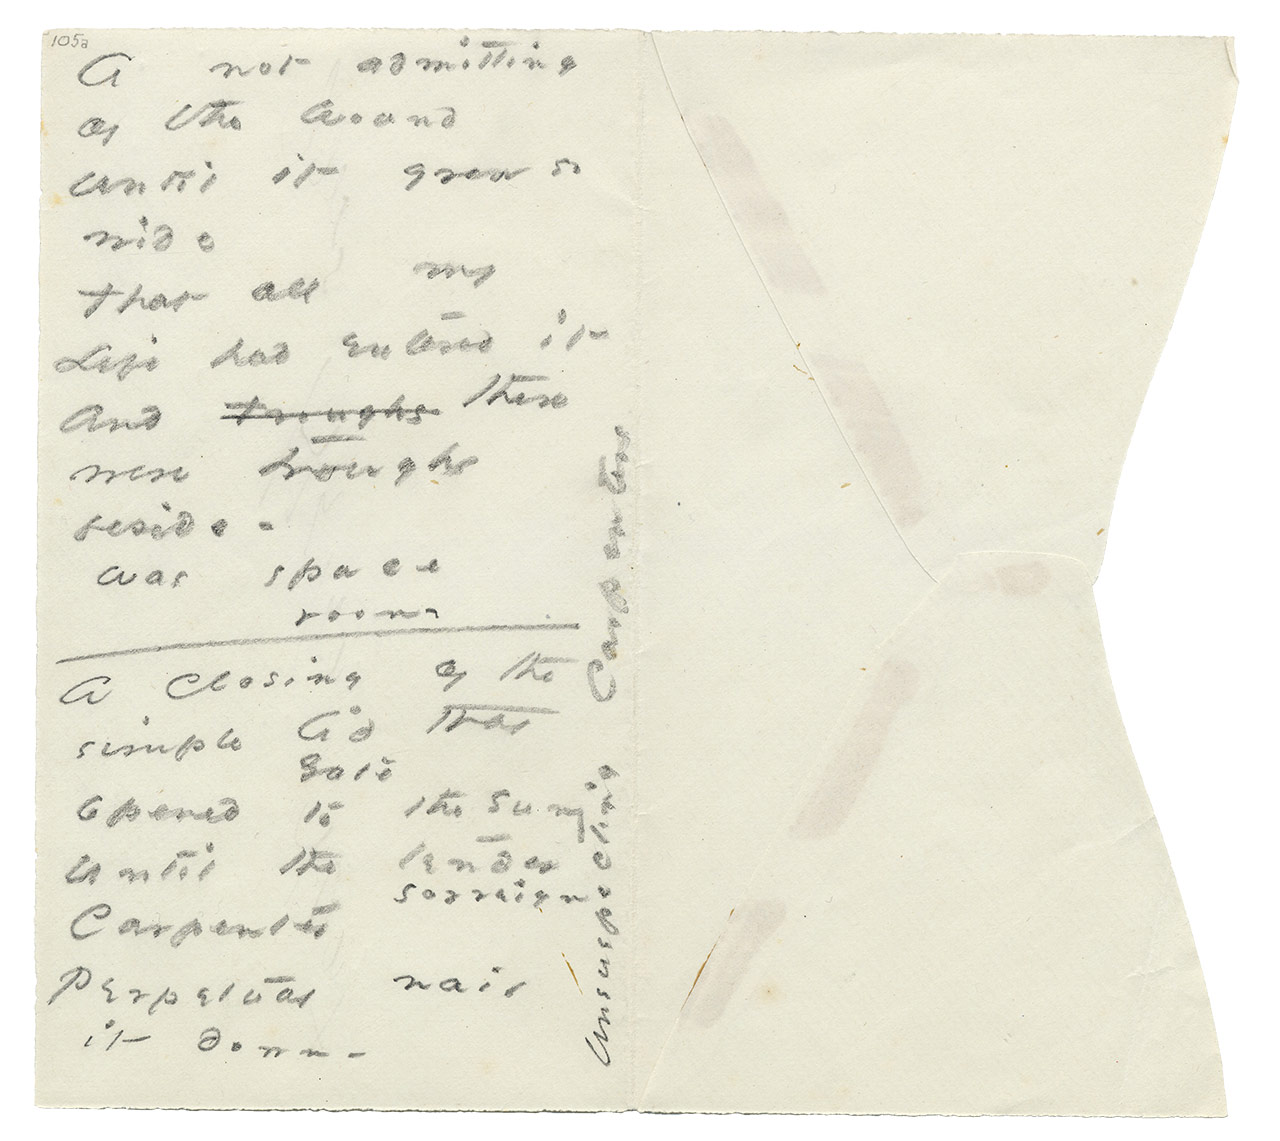 105a
A not admitting
of the wound
until it grew so
wide
that all my
Life had entered it
And troughs there
were troughs
beside -
was space
room
A closing of the
simple lid that
Gate
opened to the sun
Until the tender
sovreign
Carpenter
Perpetual nail
it down -
Unsuspecting Carpenters